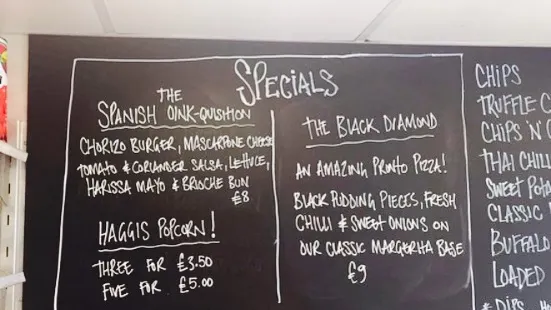 SPECIALS
THE
SPANISH OINK-QUISITION
CHORIZO BURGER, MASCARPONE CHEESE
TOMATO & CORIANDER SALSA, LETTUCE,
HARISSA MAYO & BRIOCHE BUN
£8
HAGGIS POPCORN!
THREE FOR £3.50
FIVE FOR £5.00
THE BLACK DIAMOND
AN AMAZING PRONTO PIZZA!
BLACK PUDDING PIECES, FRESH
CHILLI & SWEET ONIONS ON
OUR CLASSIC MARGERITA BASE
£9
CHIPS
TRUFFLE
CHIPS 'N'
THAI CHILLI
SWEET
CLASSIC
BUFFALO
LOADED
* DIPS